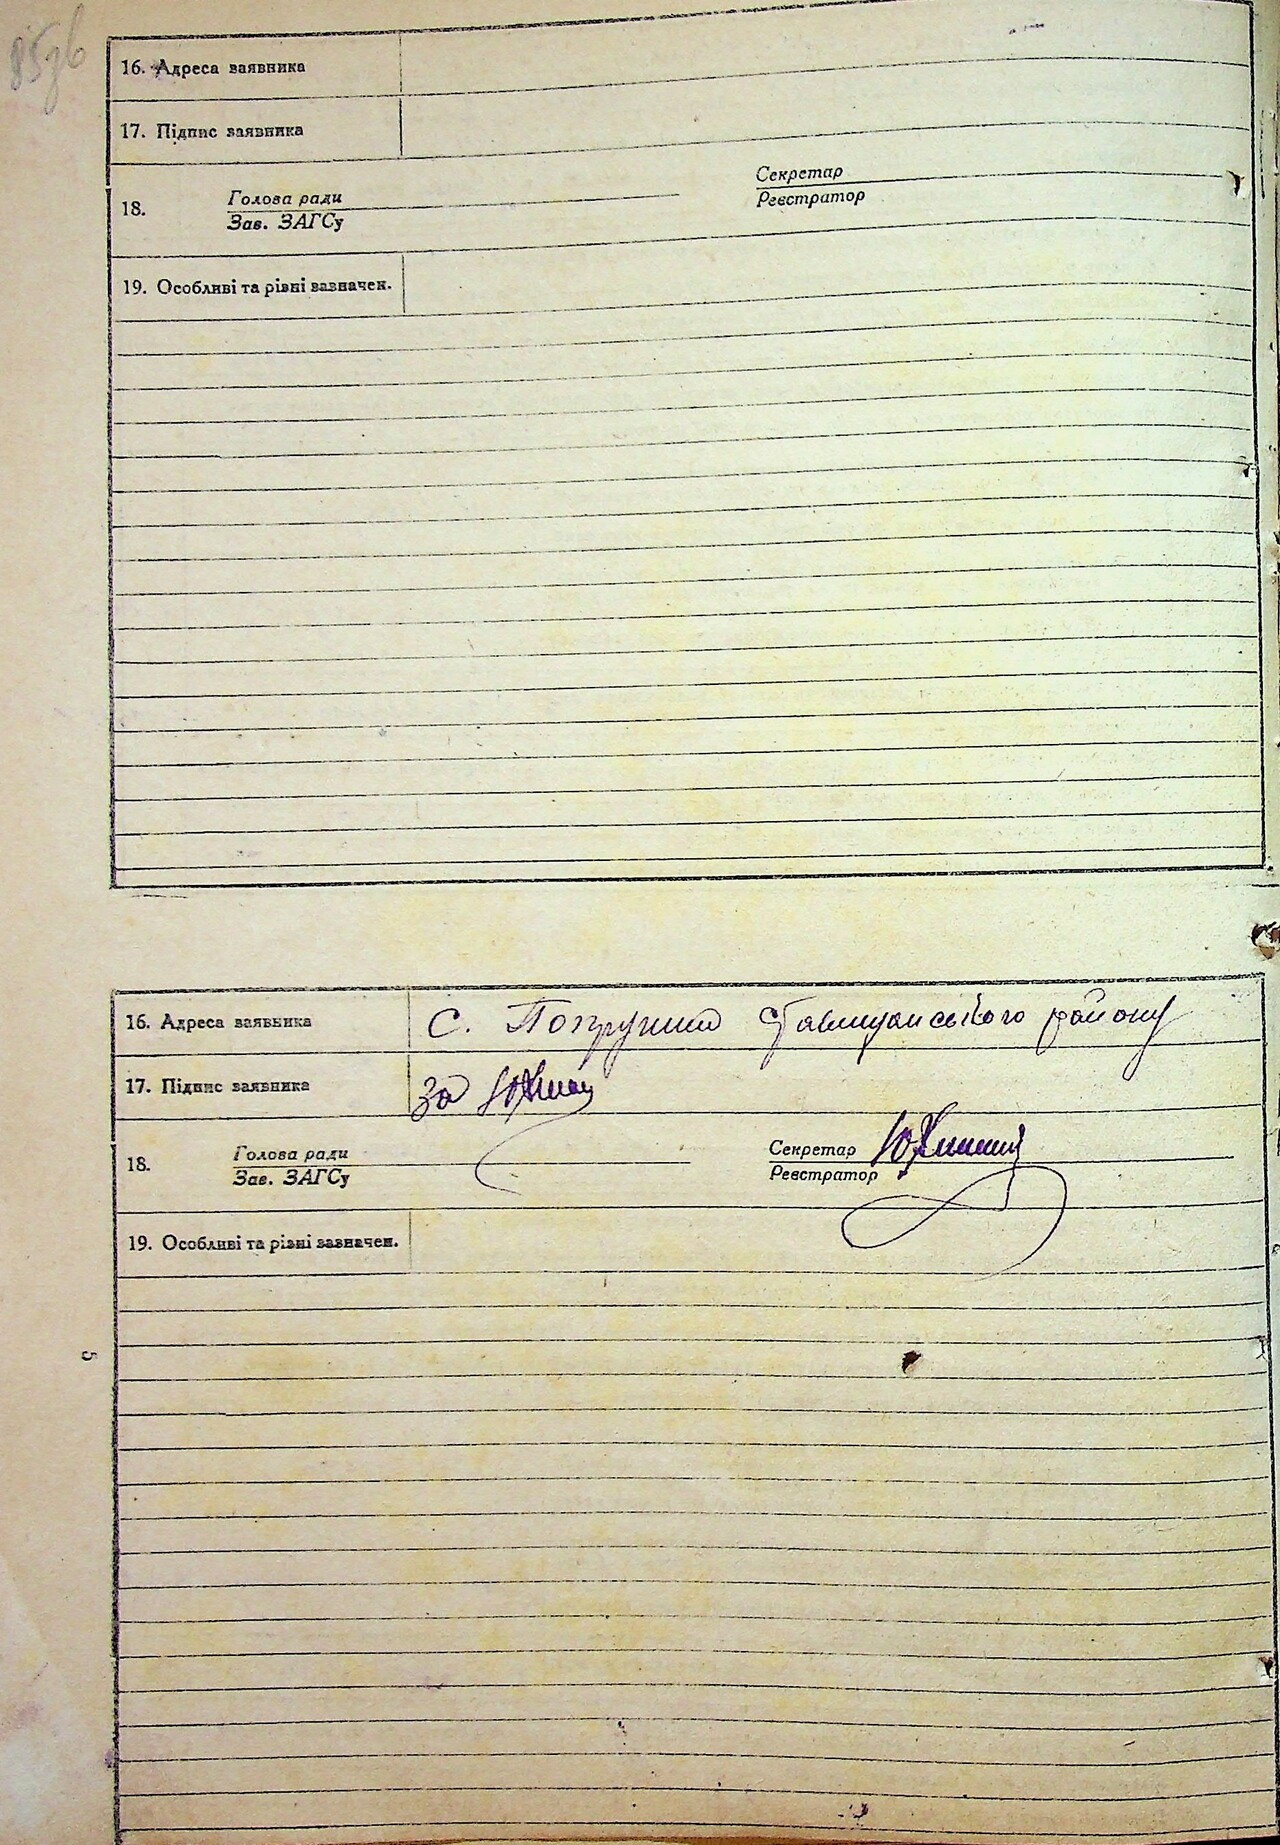 85зв
16. Адреса заявника
17. Підпис заявника
18. Голова ради Секретар
Зав. ЗАГСу Реєстратор
19. Особливі та різні зазначен.
16. Адреса заявника с. Попружна Ставищанського району
17. Підпис заявника За
18. Голова ради Секретар
Зав. ЗАГСу Реєстратор
19. Особливі та різні зазначен.
5